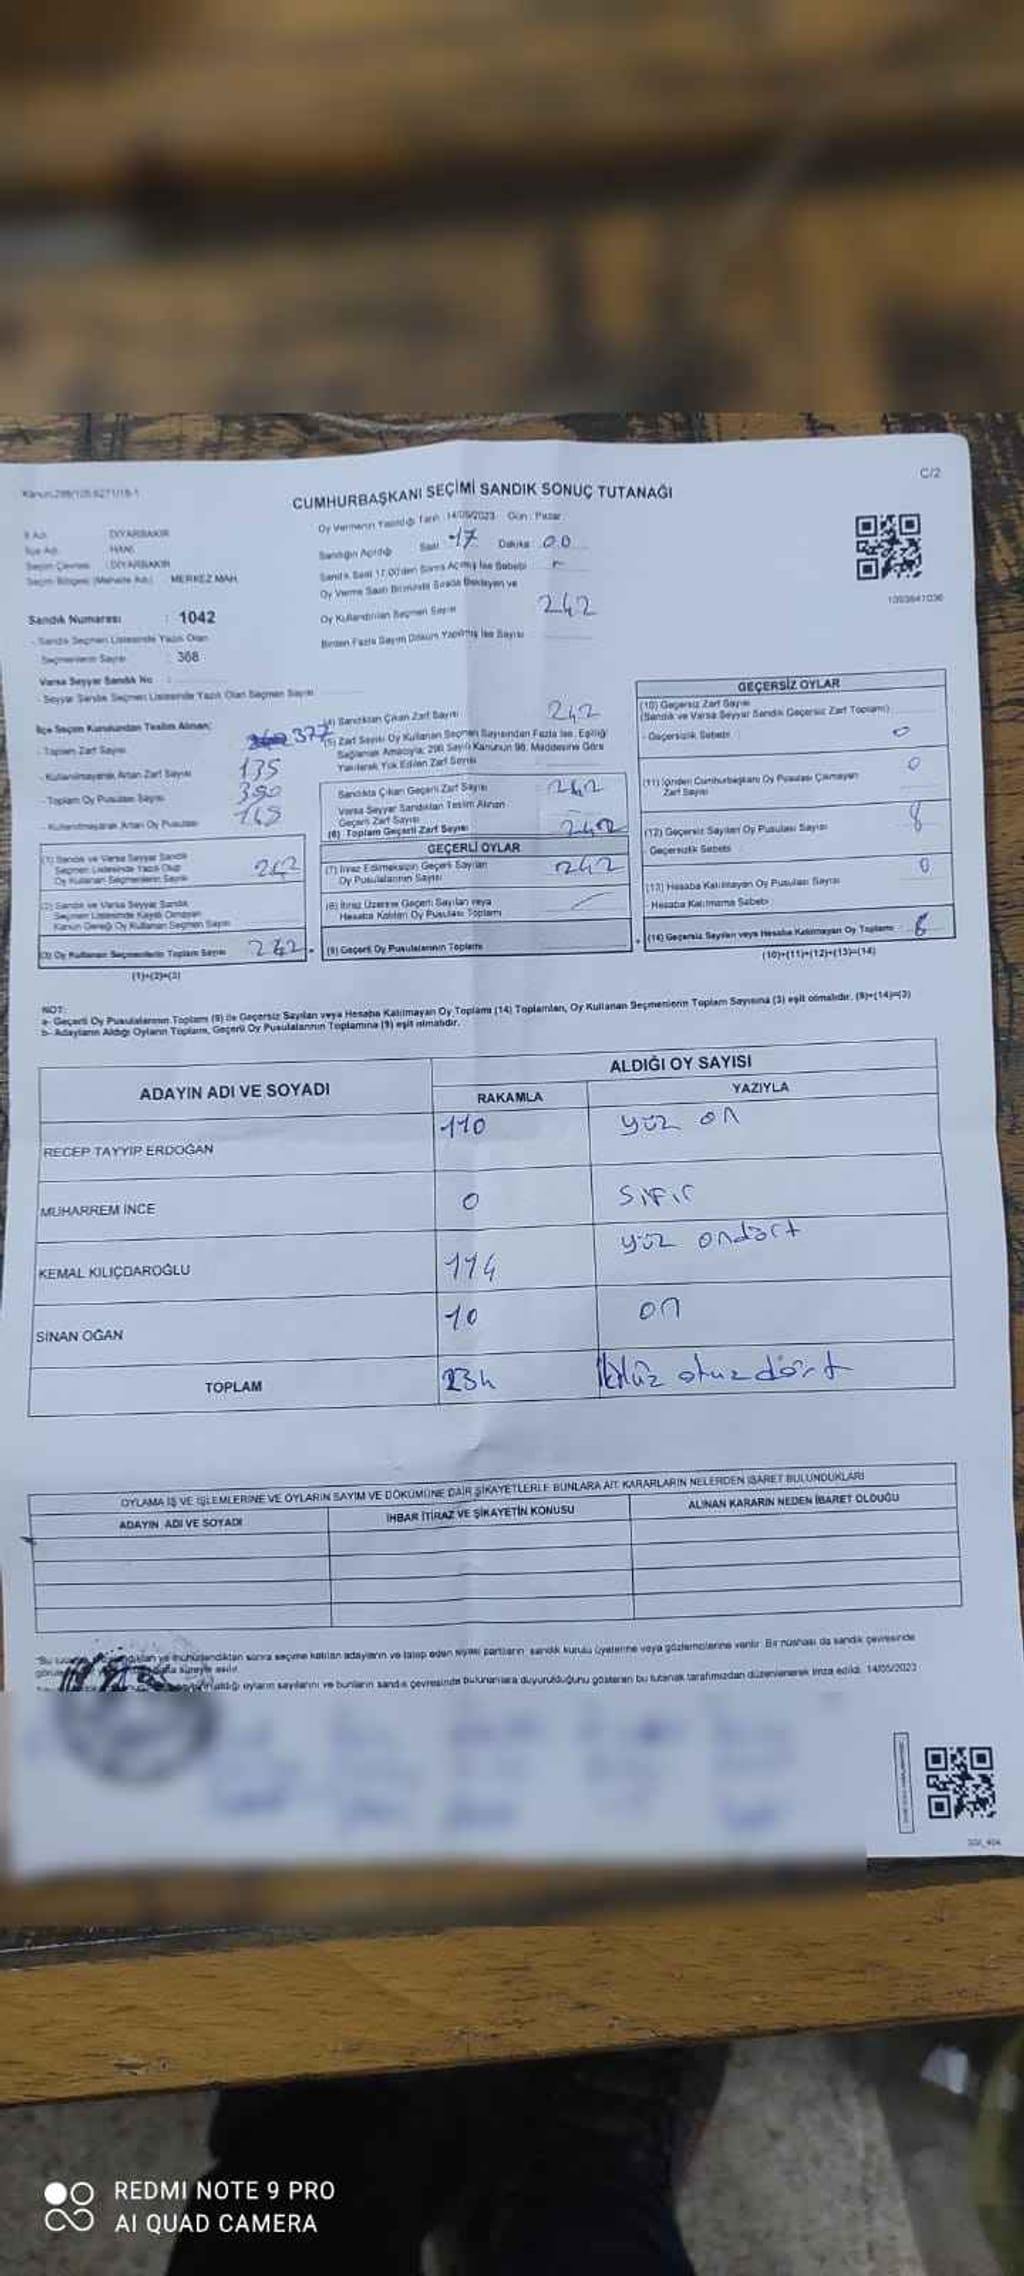 Kanun:298/105.6271/18-1
C/2
CUMHURBAŞKANI SEÇİMİ SANDIK SONUÇ TUTANAĞI
İl Adı : DİYARBAKIR
İlçe Adı : HANİ
Seçim Çevresi : DİYARBAKIR
Seçim Bölgesi (Mahalle Adı) : MERKEZ MAH.
Sandık Numarası : 1042
- Sandık Seçmen Listesinde Yazılı Olan
Seçmenlerin Sayısı : 368
Varsa Seyyar Sandık No :
- Seyyar Sandık Seçmen Listesinde Yazılı Olan Seçmen Sayısı
Oy Vermenin Yapıldığı Tarih : 14/05/2023 Gün : Pazar
Sandığın Açıldığı Saat 17 Dakika 00
Sandık Saat 17.00'den Sonra Açılmış İse Sebebi
Oy Verme Saati Bitiminde Sırada Bekleyen ve
Oy Kullandırılan Seçmen Sayısı 242
Birden Fazla Sayım Döküm Yapılmış İse Sayısı
1093847036
İlçe Seçim Kurulundan Teslim Alınan;
- Toplam Zarf Sayısı 377
- Kullanılmayarak Artan Zarf Sayısı 135
- Toplam Oy Pusulası Sayısı 390
- Kullanılmayarak Artan Oy Pusulası 148
(1) Sandık ve Varsa Seyyar Sandık
Seçmen Listesinde Yazılı Olup
Oy Kullanan Seçmenlerin Sayısı 242
(2) Sandık ve Varsa Seyyar Sandık
Seçmen Listesinde Kayıtlı Olmayan
Kanun Gereği Oy Kullanan Seçmen Sayısı
(3) Oy Kullanan Seçmenlerin Toplam Sayısı 242
(1)+(2)=(3)
(4) Sandıktan Çıkan Zarf Sayısı 242
(5) Zarf Sayısı Oy Kullanan Seçmen Sayısından Fazla İse, Eşitliği
Sağlamak Amacıyla, 298 Sayılı Kanunun 98. Maddesine Göre
Yakılarak Yok Edilen Zarf Sayısı
Sandıkta Çıkan Geçerli Zarf Sayısı 242
Varsa Seyyar Sandıktan Teslim Alınan
Geçerli Zarf Sayısı
(6) Toplam Geçerli Zarf Sayısı 242
GEÇERLİ OYLAR
(7) İtiraz Edilmeksizin Geçerli Sayılan
Oy Pusulalarının Sayısı 242
(8) İtiraz Üzerine Geçerli Sayılan veya
Hesaba Katılan Oy Pusulası Toplamı
(9) Geçerli Oy Pusulalarının Toplamı
GEÇERSİZ OYLAR
(10) Geçersiz Zarf Sayısı
(Sandık ve Varsa Seyyar Sandık Geçersiz Zarf Toplamı)
- Geçersizlik Sebebi 0
(11) İçinden Cumhurbaşkanı Oy Pusulası Çıkmayan
Zarf Sayısı 0
(12) Geçersiz Sayılan Oy Pusulası Sayısı 8
Geçersizlik Sebebi
(13) Hesaba Katılmayan Oy Pusulası Sayısı 0
- Hesaba Katılmama Sebebi
(14) Geçersiz Sayılan veya Hesaba Katılmayan Oy Toplamı 8
(10)+(11)+(12)+(13)=(14)
NOT:
a- Geçerli Oy Pusulalarının Toplamı (9) ile Geçersiz Sayılan veya Hesaba Katılmayan Oy Toplamı (14) Toplamları, Oy Kullanan Seçmenlerin Toplam Sayısına (3) eşit olmalıdır. (9)+(14)=(3)
b- Adayların Aldığı Oyların Toplamı, Geçerli Oy Pusulalarının Toplamına (9) eşit olmalıdır.
ADAYIN ADI VE SOYADI
ALDIĞI OY SAYISI
RAKAMLA YAZIYLA
RECEP TAYYİP ERDOĞAN 110 yüz on
MUHARREM İNCE 0 sıfır
KEMAL KILIÇDAROĞLU 114 yüz ondört
SİNAN OĞAN 10 on
TOPLAM 234 ikiyüz otuzdört
OYLAMA İŞ VE İŞLEMLERİNE VE OYLARIN SAYIM VE DÖKÜMÜNE DAİR ŞİKAYETLERLE BUNLARA AİT KARARLARIN NELERDEN İBARET BULUNDUKLARI
ADAYIN ADI VE SOYADI İHBAR İTİRAZ VE ŞİKAYETİN KONUSU ALINAN KARARIN NEDEN İBARET OLDUĞU
ve mühürlendikten sonra seçime katılan adayların ve talep eden siyasi partilerin sandık kurulu üyelerine veya gözlemcilerine verilir. Bir nüshası da sandık çevresinde
süreyle asılır.
aldığı oyların sayılarını ve bunların sandık çevresinde bulunanlara duyurulduğunu gösteren bu tutanak tarafımızdan düzenlenerek imza edildi. 14/05/2023
REDMI NOTE 9 PRO
AI QUAD CAMERA